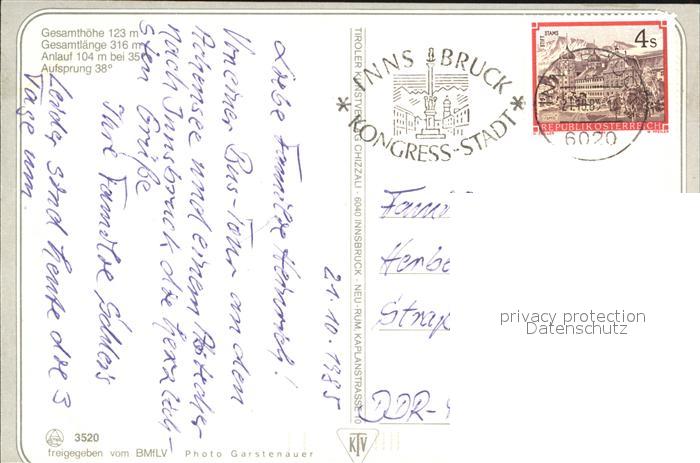 Gesamthöhe 123 m
Gesamtlänge 316 m
Anlauf 104 m bei 35°
Aufsprung 38°
21.10.1985
Liebe Familie Heinrich!
Von einer Bus-Tour an den
Achensee und einem Abstecher
nach Innsbruck die herzlich-
sten Grüße
Ihre Familie
Leider sind heute die 3
Tage um.
3520
freigegeben vom BMfLV
Photo Garstenauer
TIROLER KUNSTVERLAG CHIZZALI · 6040 INNSBRUCK - NEU-RUM, KAPLANSTRASSE 10
KTV
INNSBRUCK
* KONGRESS-STADT *
STIFT STAMS
4 S
REPUBLIK ÖSTERREICH
6020
Fami
Herbe
DDR-
privacy protection
Datenschutz